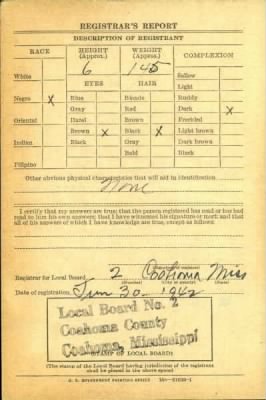 REGISTRAR'S REPORT
DESCRIPTION OF REGISTRANT
RACE HEIGHT (Approx.) WEIGHT (Approx.) COMPLEXION
6 145
White Sallow
Light
EYES HAIR
Negro X Blue Blonde Ruddy
Gray Red Dark X
Oriental Hazel Brown Freckled
Brown X Black X Light brown
Indian Black Gray Dark brown
Bald Black
Filipino
Other obvious physical characteristics that will aid in identification
None
I certify that my answers are true; that the person registered has read or has had
read to him his own answers; that I have witnessed his signature or mark and that
all of his answers of which I have knowledge are true, except as follows:
(Signature of registrar)
Registrar for Local Board 2 Coahoma Miss
(Number) (City or county) (State)
Date of registration Jun 30 - 1942
Local Board No. 2
Coahoma County
Coahoma, Mississippi
(STAMP OF LOCAL BOARD)
(The stamp of the Local Board having jurisdiction of the registrant
shall be placed in the above space)
U. S. GOVERNMENT PRINTING OFFICE